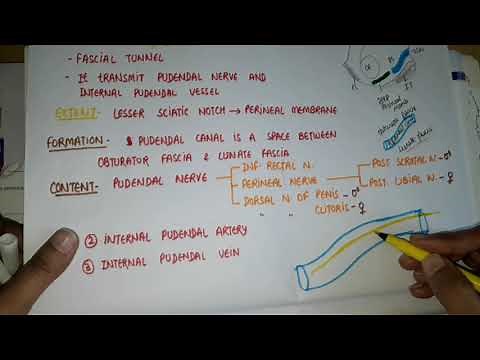 - FASCIAL TUNNEL
- It TRANSMIT PUDENDAL NERVE AND
INTERNAL PUDENDAL VESSEL
EXTENT- LESSER SCIATIC NOTCH → PERINEAL MEMBRANE
FORMATION- PUDENDAL CANAL IS A SPACE BETWEEN
OBTURATOR FASCIA & LUNATE FASCIA
CONTENT- PUDENDAL NERVE
INF RECTAL N.
PERINEAL NERVE
POST SCROTAL N-♂
POST LABIAL N. ♀
DORSAL N OF PENIS -♂
" " CLITORIS-♀
② INTERNAL PUDENDAL ARTERY
③ INTERNAL PUDENDAL VEIN